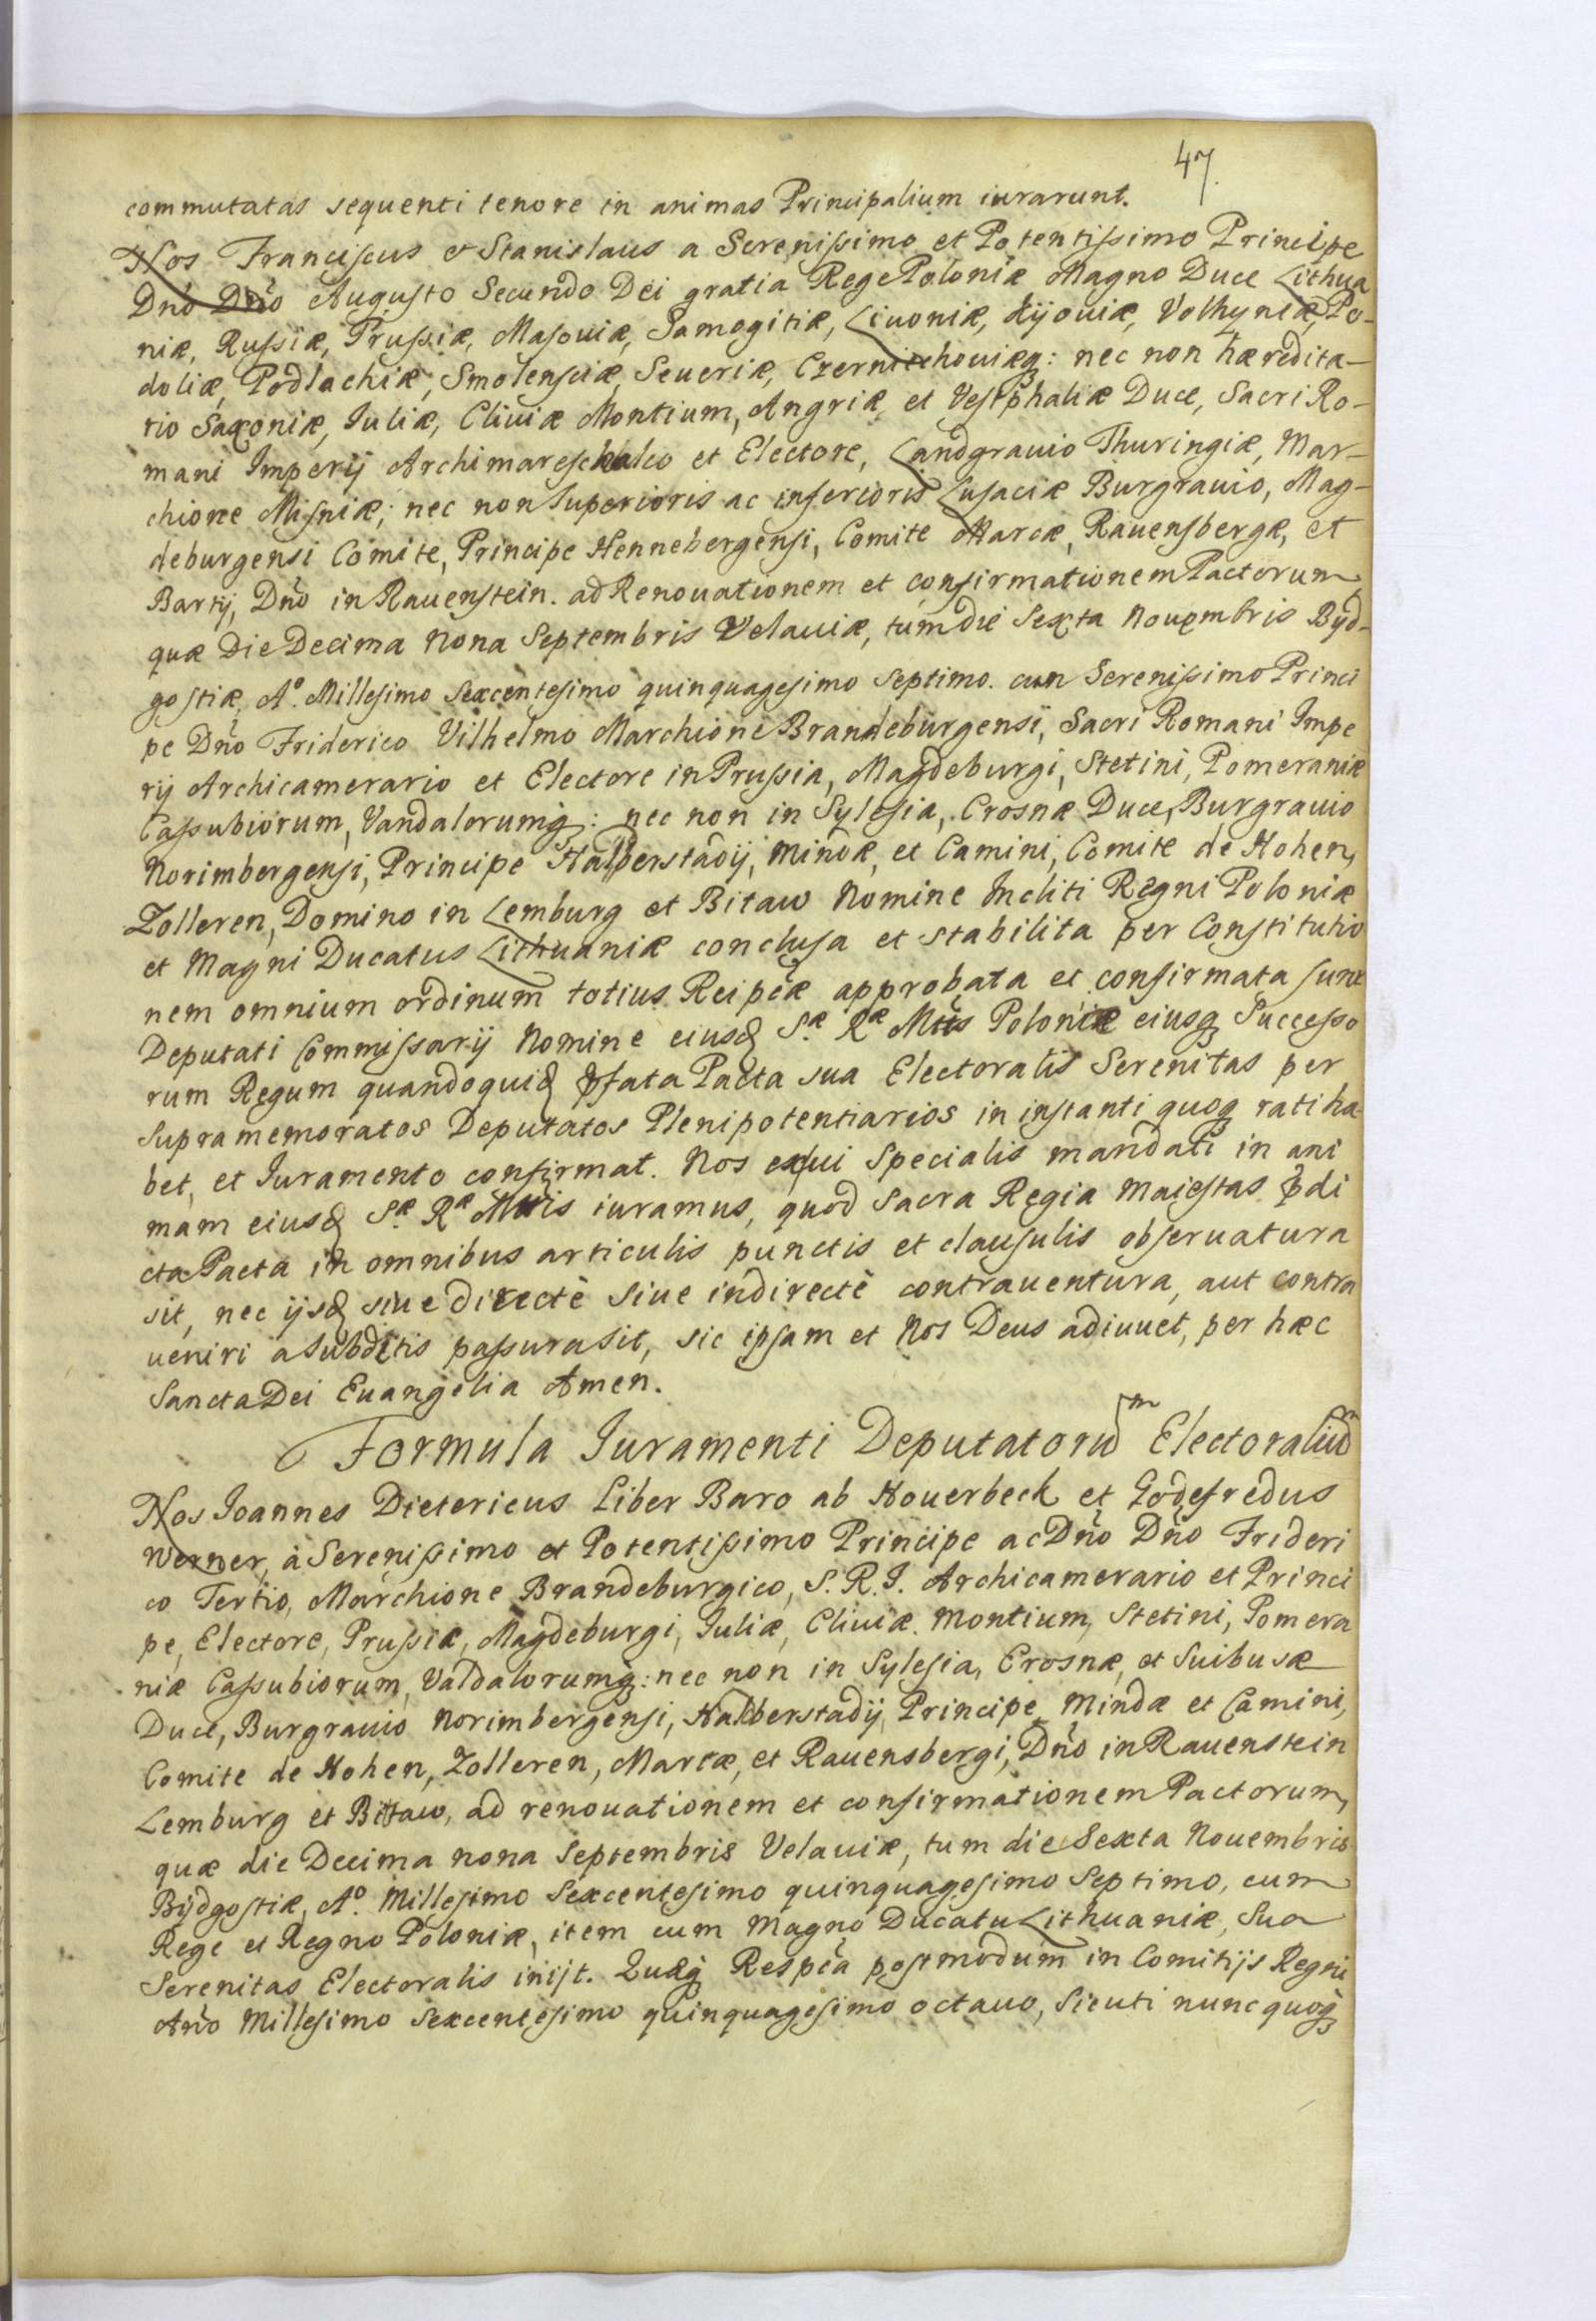 47.
commutatas sequenti tenore in animas Principalium iurarunt.
Nos Franciscus et Stanislaus a Serenissimo et Potentissimo Principe
Dnō Dnō Augusto Secundo Dei gratia Rege Poloniæ Magno Duce Lithua
niæ, Russiæ, Prussiæ, Masouiæ, Samogitiæ, Liuoniæ, Kijouiæ, Volhyniæ, Po-
doliæ, Podlachiæ, Smolensciæ, Seueriæ, Czerniechouiæq: nec non hæredita-
rio Saxoniæ, Iuliæ, Cliuiæ Montium, Angriæ, et Vestphaliæ Duce, Sacri Ro-
mani Imperij Archimareschalco et Electore, Landgrauio Thuringiæ, Mar-
chione Misniæ; nec non Superioris ac inferioris Lusaciæ Burgrauio, Mag-
deburgensi Comite, Principe Hennebergensi, Comite Marcæ, Rauensbergæ, et
Bartij, Dnō in Rauenstein. ad Renouationem et confirmationem Pactorum,
quæ Die Decima Nona Septembris Velauiæ, tum die Sexta Nouembris Byd-
gostiæ, Aº. Millesimo Sexcentesimo quinquagesimo Septimo. cum Serenissimo Princi
pe Dnō Friderico Vilhelmo Marchione Brandeburgensi, Sacri Romani Impe
rij Archicamerario et Electore in Prussia, Magdeburgi, Stetini, Pomeraniæ
Cassubiorum, Vandalorumq: nec non in Sylesia, Crosnæ Duce, Burgrauio
Norimbergensi, Principe Halberstadij, Mindæ, et Camini, Comite de Hohen,
Zolleren, Domino in Lemburg et Bitaw Nomine Incliti Regni Poloniæ
et Magni Ducatus Lithuaniæ conclusa et stabilita per Constitutio
nem omnium ordinum totius Reipcæ approbata et confirmata sunt
Deputati Commissarij Nomine eiusd Sæ. Ræ Mtis Poloniæ eiusq Successo
rum Regum quandoquid pfata Pacta sua Electoralis Serenitas per
supramemoratos Deputatos Plenipotentiarios in instanti quoq ratiha-
bet, et Iuramento confirmat. Nos exui Specialis mandati in ani
mam eiusd Sæ. Ræ Mttis iuramus, quod Sacra Regia Maiestas pdi
cta Pacta in omnibus articulis punctis et clausulis obseruatura
sit, nec ijsd siue directè siue indirectè contrauentura, aut contra
ueniri a Subditis passura sit, sic ipsam et Nos Deus adiuuet, per hæc
Sancta Dei Euangelia Amen.
Formula Iuramenti Deputatorum Electoralium
Nos Ioannes Dietericus Liber Baro ab Houerbeck et Godefredus
Werner, à Serenissimo et Potentissimo Principe ac Dnō Dnō Frideri
co Tertio, Marchione Brandeburgico, S. R. I. Archicamerario et Princi
pe, Electore, Prussiæ, Magdeburgi, Iuliæ, Cliuiæ. Montium, Stetini, Pomera
niæ Cassubiorum, Valdalorumq: nec non in Sylesia, Crosnæ, et Suibusæ
Duce, Burgrauio Norimbergensi, Halberstadij, Principe Mindæ et Camini,
Comite de Hohen, Zolleren, Marcæ, et Rauensbergi, Dnō in Rauenstein
Lemburg et Bittaw, ad renouationem et confirmationem Pactorum,
quæ die Decima nona Septembris Velauiæ, tum die Sexta Nouembris
Bijdgostiæ, Aº. Millesimo Sexcentesimo quinquagesimo Septimo, cum
Rege et Regno Poloniæ, item cum Magno Ducatu Lithuaniæ, Sua
Serenitas Electoralis inijt. Quæq Respca postmodum in Comitijs Regni
Anō Millesimo Sexcentesimo quinquagesimo octauo, sicuti nunc quoq